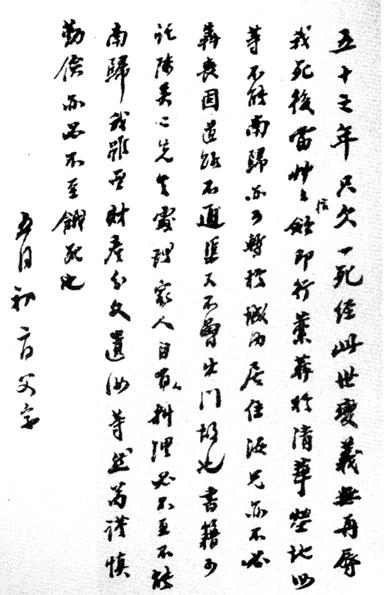 五十之年只欠一死經此世變義無再辱
我死後當艸々棺斂即行藁葬於清華塋地汝
等不能南歸亦可暫於城內居住汝兄亦不必
奔喪因道路不通渠又不曾出門故也書籍可
託陳吳二先生處理家人自有人料理必不至不能
南歸我雖無財產分文遺汝等然苟謹慎
勤儉亦必不至餓死也
五月初二日父字